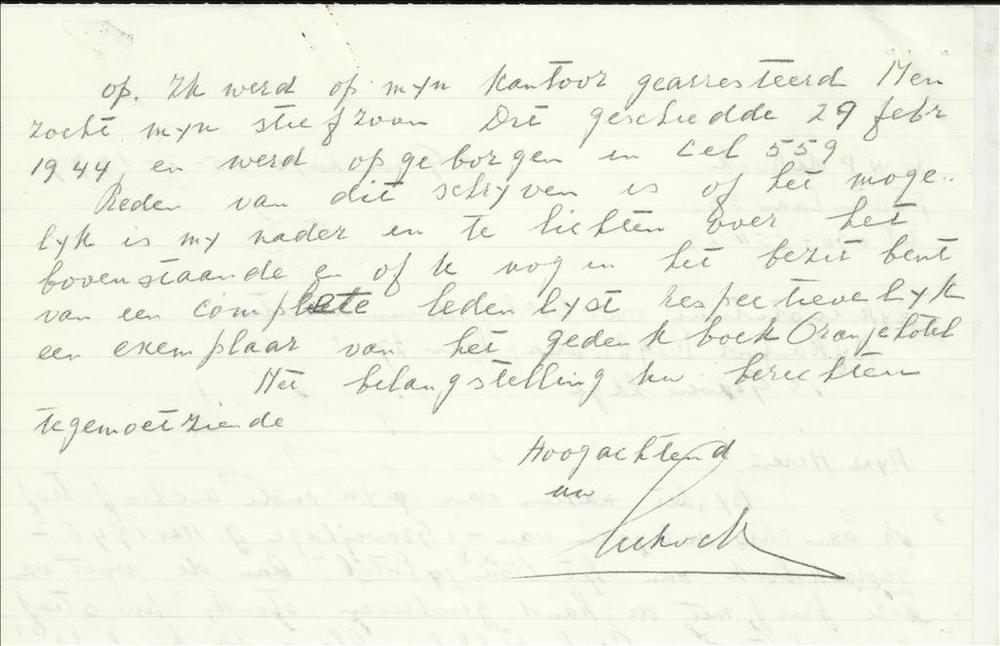 op. Ik werd op mijn kantoor gearresteerd Men
zocht mijn stiefzoon Dit geschiedde 29 febr
1944, en werd opgeborgen in cel 559
Reden van dit schrijven is of het moge..
lyk is my nader in te lichten over het
bovenstaande en of U nog in het bezit bent
van een complete ledenlyst respectievelyk
een exemplaar van het gedenkboek Oranjehotel
Met belangstelling Uw berichten
tegemoetziende
Hoogachtend
uw